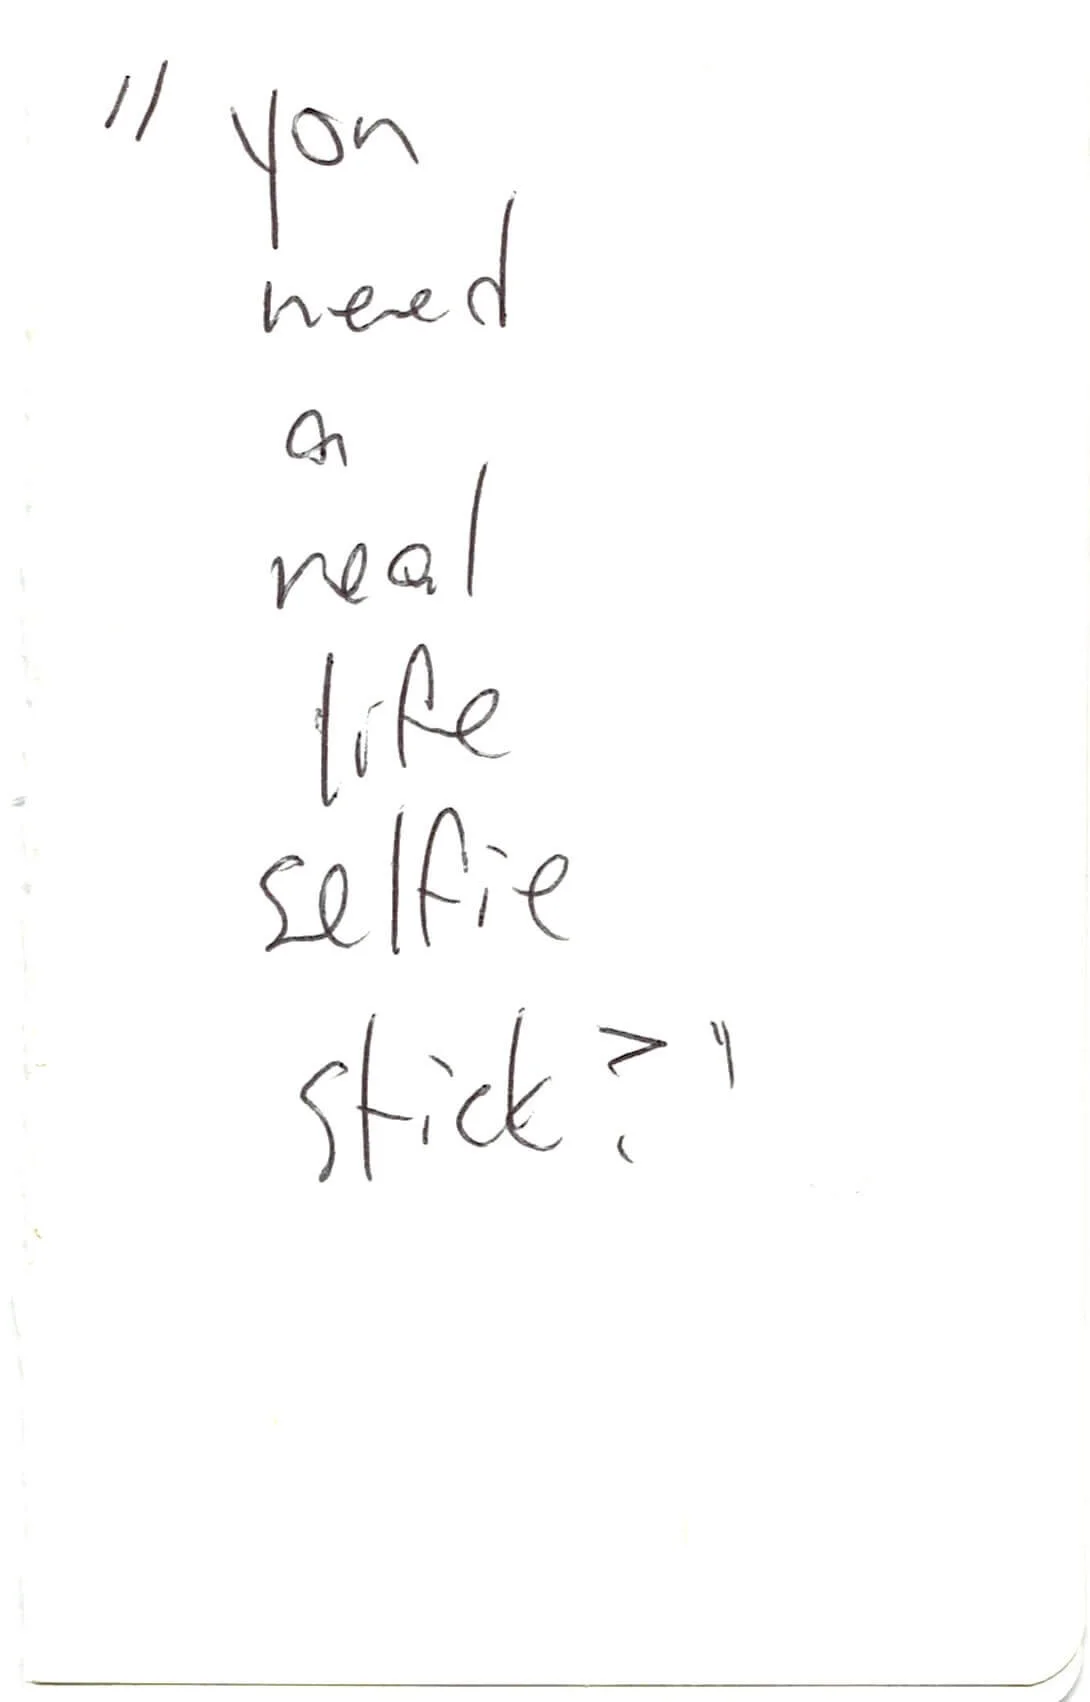 "you
need
a
real
life
selfie
stick?"